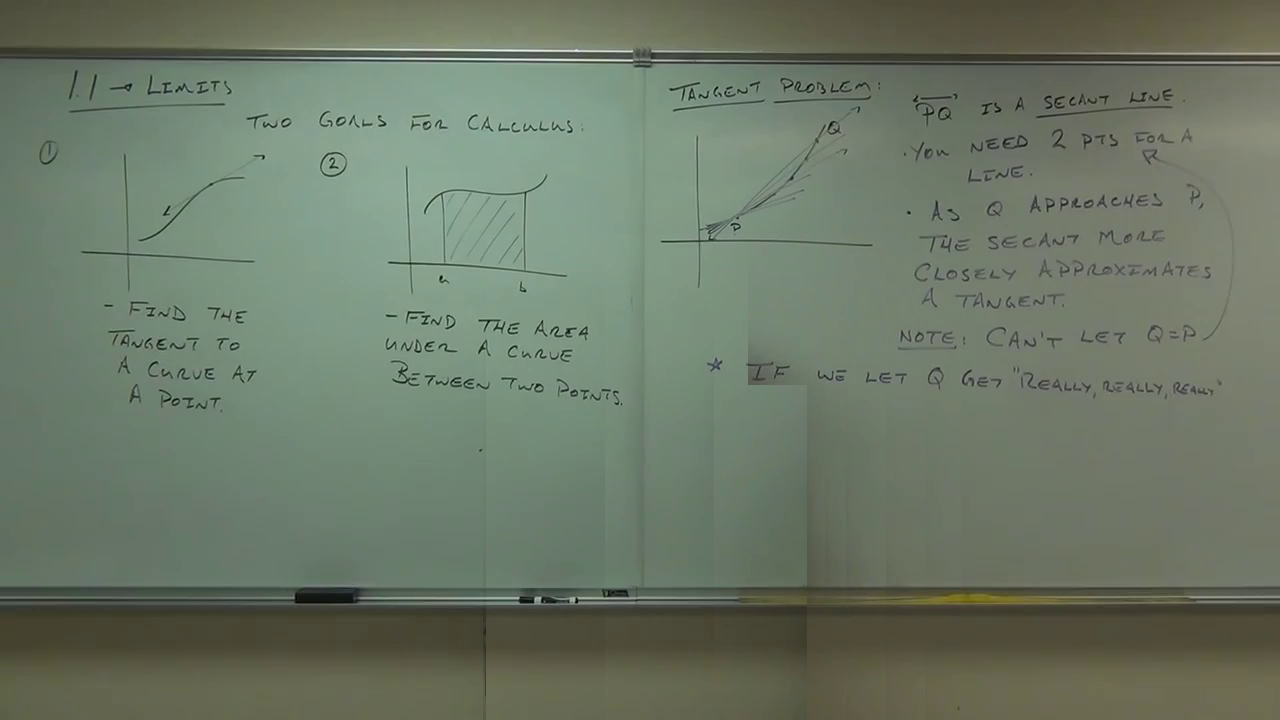 1.1 → LIMITS
TWO GOALS FOR CALCULUS:
①
②
a
b
- FIND THE
TANGENT TO
A CURVE AT
A POINT.
- FIND THE AREA
UNDER A CURVE
BETWEEN TWO POINTS.
TANGENT PROBLEM:
Q
P
PQ IS A SECANT LINE.
• YOU NEED 2 PTS FOR A
LINE.
• AS Q APPROACHES P,
THE SECANT MORE
CLOSELY APPROXIMATES
A TANGENT.
NOTE: CAN'T LET Q=P
* IF WE LET Q GET "REALLY, REALLY, REALLY"